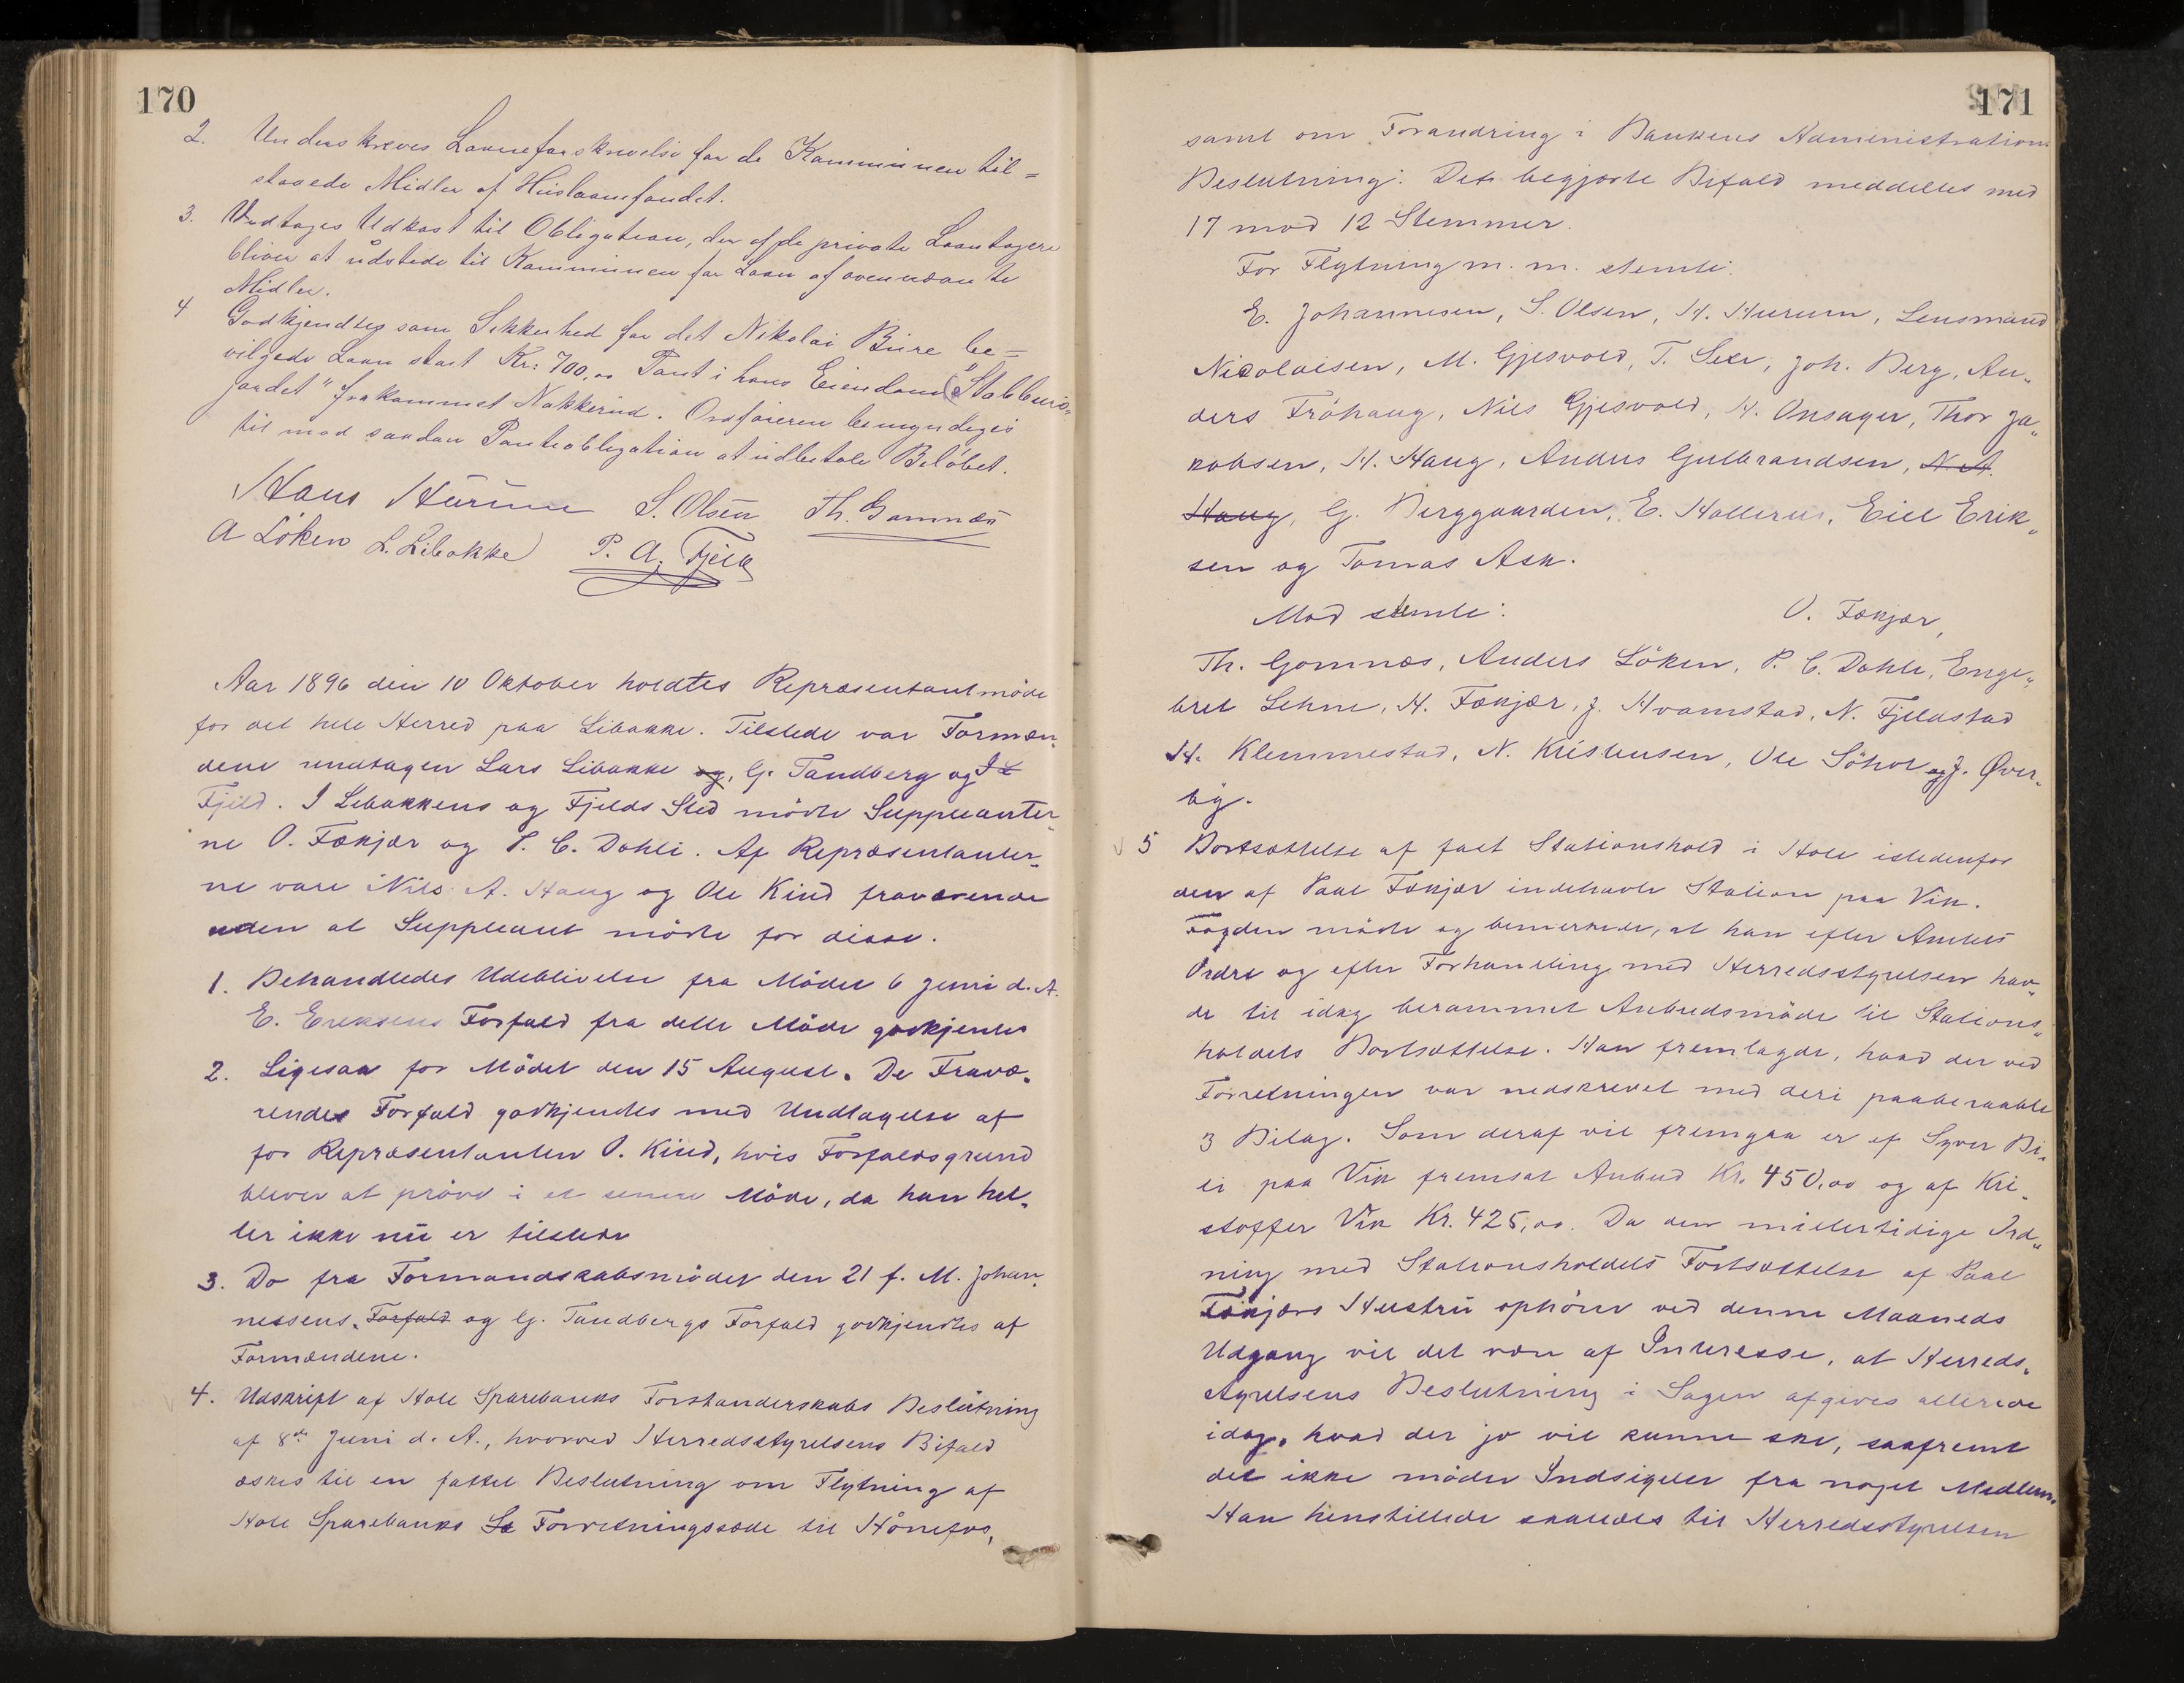 170
2. Underskreves Laaneforskrivelse for de Kommunen til=
staaede Midler af Huslaanefondet.
3. Vedtoges Udkast til Obligation, der af de private Laantagere
bliver at udstede til Kommunen for Laan af ovennævnte
Midler.
4 Godkjendtes som Sikkerhed for det Nikolai Bure be=
vilgede Laan stort Kr: 700,00 Pant i hans Eiendom "Stabburs-
jordet" frakommet Nakkerud. Ordføreren bemyndiges
til mod saadan Panteobligation at udbetale Beløbet.
Hans Hurum S. Olsen Th. Gomnæs
A Löken L. Libakke P. A. Fjeld
Aar 1896 den 10 Oktober holdtes Repræsentantmöde
for det hele Herred paa Libakke. Tilstede var Formæn„
dene undtagen Lars Libakke og, G. Tandberg og
Fjeld. I Libakkens og Fjelds Sted mödte Suppleanter„
ne O. Fækjær og P. C. Dohli. Af Repræsentanter„
ne vare Nils A. Haug og Ole Kind fraværende
uden at Suppleant mödte for disse.
1. Behandledes Udeblivelse fra Mödet 6 Juni d. A.
E. Ereksens Forfald fra dette Möde godkjendtes
2. Ligesaa for Mödet den 15 August. De Fravæ„
rendes Forfald godkjendtes med Undtagelse af
for Repræsentanten O. Kind, hvis Forfaldsgrund
bliver at pröve i et senere Möde, da han hel„
ler ikke nu er tilstede
3. Do fra Formandskabsmödet den 21 f. M. Johan„
nessens Forfald og G. Tandbergs Forfald godkjendtes af
Formændene.
4. Udskrift af Hole Sparebanks Forstanderskabs Beslutning
af 8de Juni d. A., hvorved Herredsstyrelsens Bifald
æskes til en fattet Beslutning om Flytning af
Hole Sparebanks Se Forretningssæde til Hönefos,
171
samt om Forandring i Bankens Administrations
Beslutning: Det begjærte Bifald meddeltes med
17 mod 12 Stemmer.
For Flytning m. m. stemte:
E. Johannesen, S. Olsen, H. Hurum, Lensmand
Nicolaisen, M. Gjesvold, T. Sexe, Joh. Berg, An„
ders Fröhaug, Nils Gjesvold, H. Onsager, Thor Ja„
kobsen, H. Haug, Anders Gulbrandsen, N. A.
Haug, G. Berggaarden, E. Hallerud, Eill Erik„
sen og Tomas Ask.
Mod stemte: O. Fækjær,
Th. Gomnæs, Anders Löken, P. C. Dohle, Enge„
bret Lehne, H. Fækjær, J. Hvamstad, N. Fjeldstad
H. Klemmestad, N. Kristensen, Ole Söhol og J. Øver„
by.
5 Bortsættelse af fast Stationshold i Hole istedenfor
den af Paal Fækjær indehavte Station paa Vik.
Fogden mödte og bemerkede, at han efter Amtets
Ordre og efter Forhandling med Herredsstyrelsen hav„
de til idag berammet Anbudsmöde til Stations„
holdets Bortsættelse. Han fremlagde, hvad der ved
Forretningen var nedskrevet med deri paaberaabte
3 Bilag. Som deraf vil fremgaa er af Syver Bi„
li paa Vik fremsat Anbud Kr. 450,00 og af Kri„
stoffer Vik Kr. 425,00. Da den midlertidige Ord„
ning med Stationsholdets Fortsættelse af Paal
Fækjærs Hustru ophörer ved denne Maaneds
Udgang vil det være af Interesse, at Herreds„
styrelsens Beslutning i Sagen afgives allerede
idag, hvad der jo vil kunne ske, saafremt
det ikke möder Indsigelse fra noget Medlem.
Han henstillede saaledes til Herredsstyrelsen